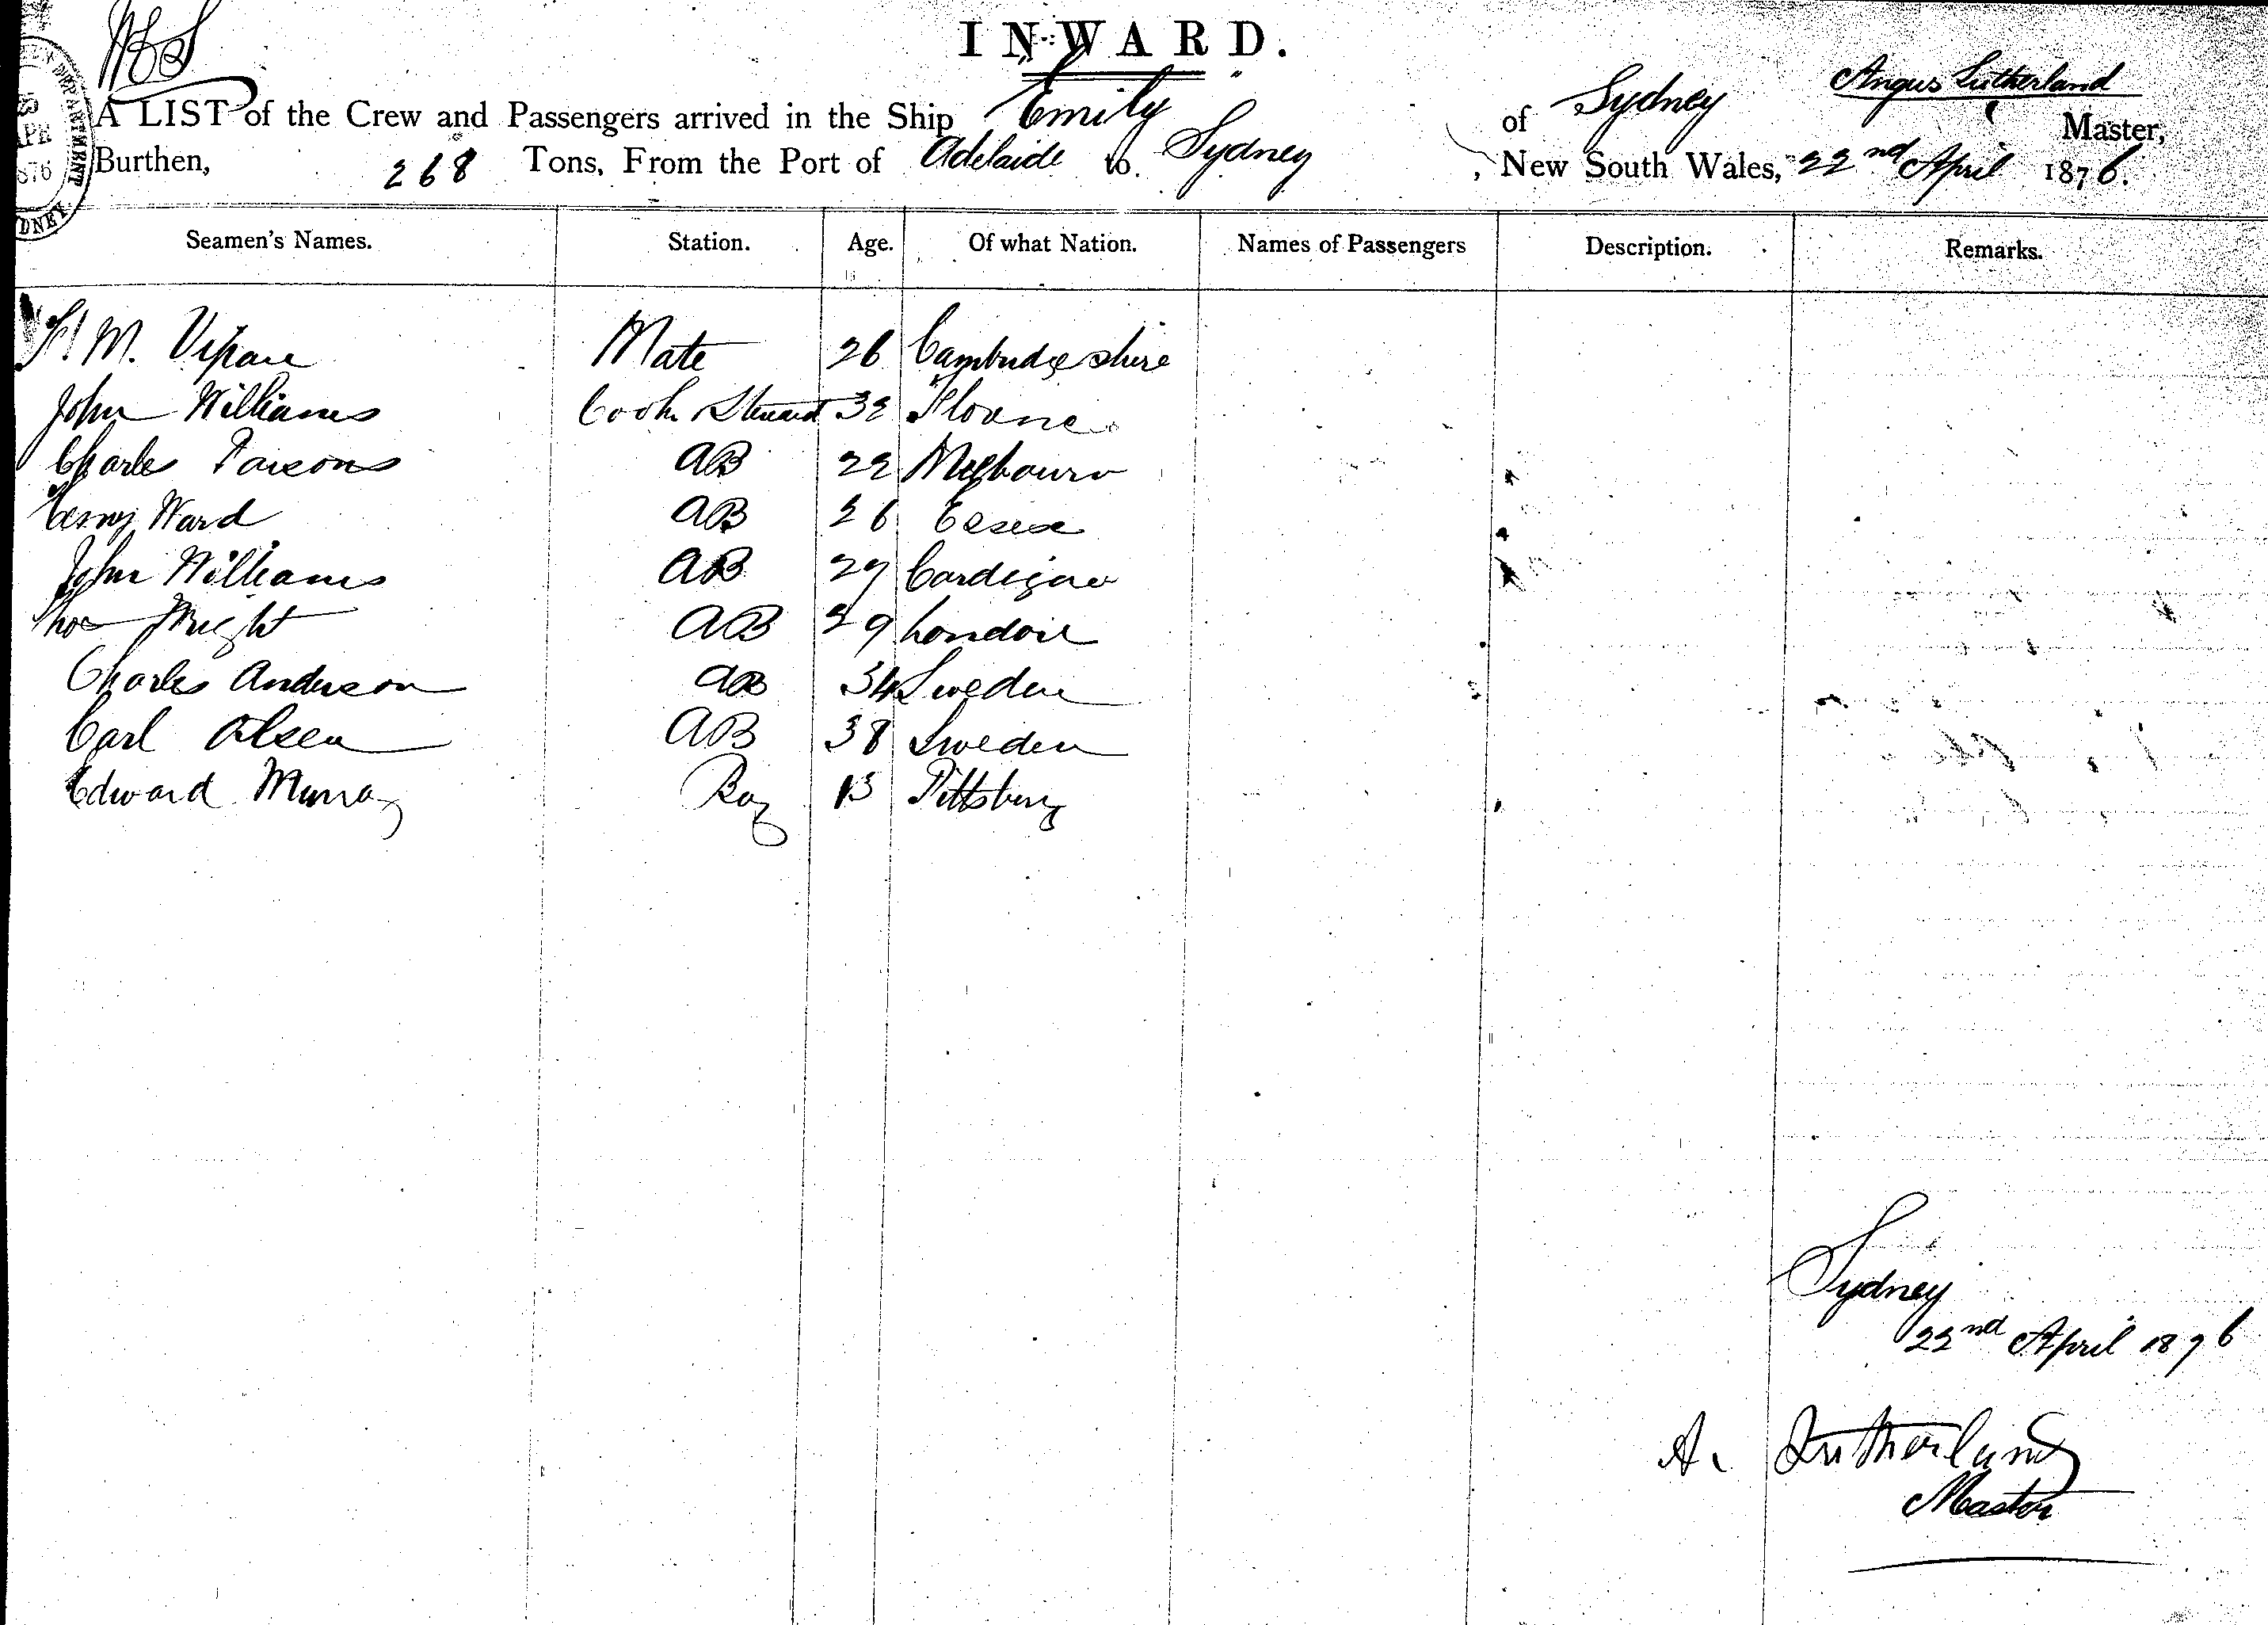 INWARD.
A LIST of the Crew and Passengers arrived in the Ship "Emily" of Sydney Angus Sutherland Master,
Burthen, 268 Tons, From the Port of Adelaide to Sydney, New South Wales, 22nd April 1876.
Seamen's Names. Station. Age. Of what Nation. Names of Passengers Description. Remarks.
M. Vipan Mate 26 Cambridgeshire
John Williams Cook Steward 32
Charles Parsons AB 22 Melbourn
Henry Ward AB 26 Essex
John Williams AB 27 Cardigan
Thos Wright AB 29 London
Charles Anderson AB 34 Sweden
Carl Olsen AB 38 Sweden
Edward Murray Boy 13 Pittsburg
Sydney
22nd April 1876
A. Sutherland
Master